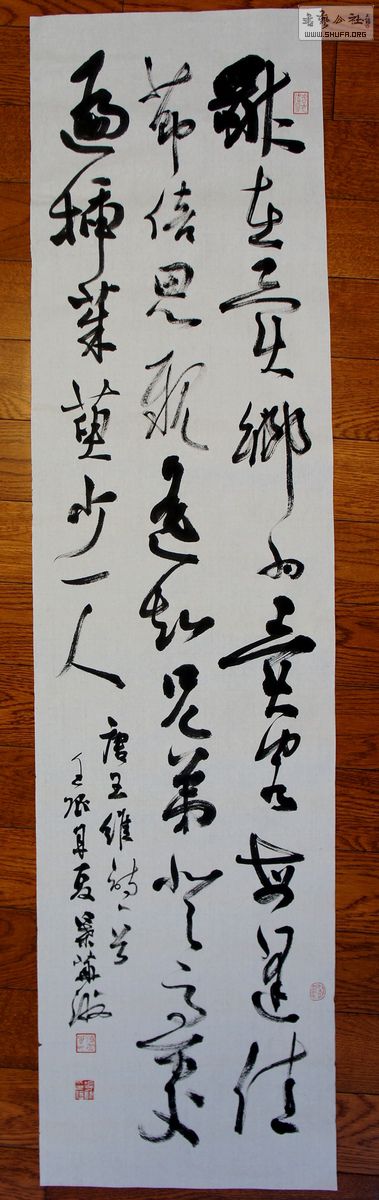 書藝公社
WWW.SHUFA.ORG
獨在異鄉為異客每逢佳
節倍思親遙知兄弟登高處
遍插茱萸少一人
唐王維詩一首
壬辰夏